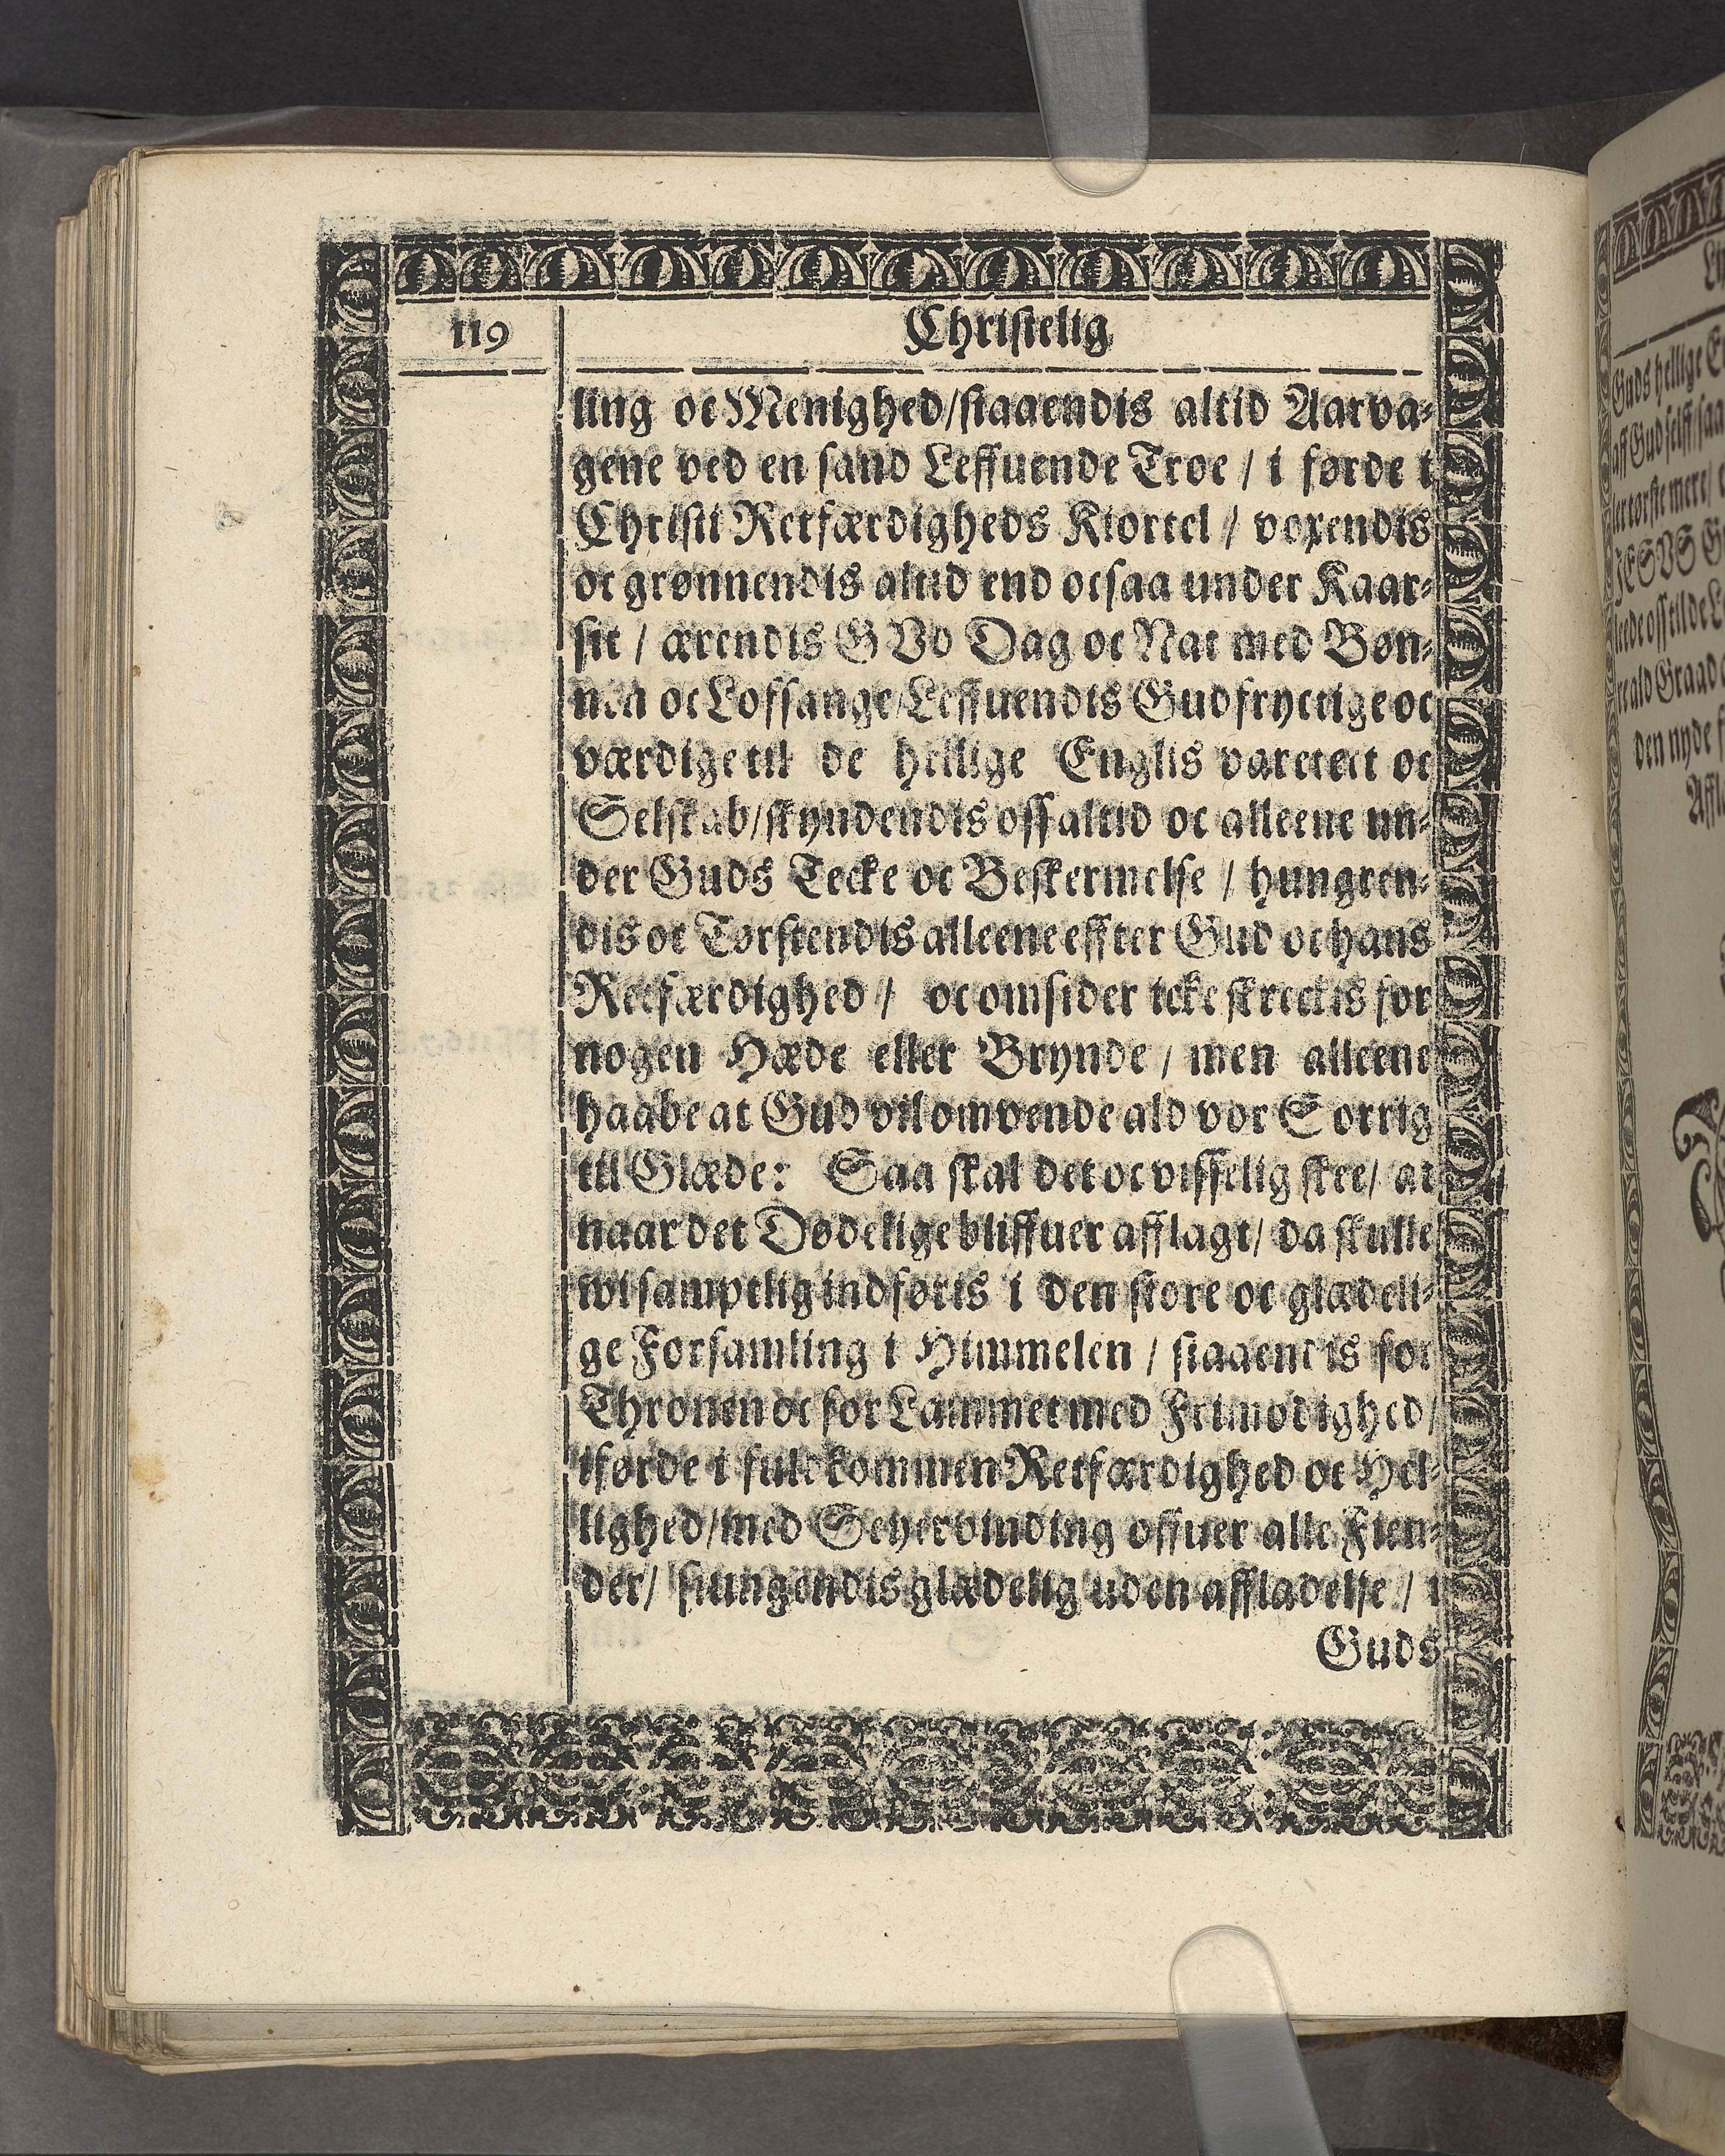 119
Christelig
ling oc Menighed/staaendis altid Aarva-
gene ved en sand Leffuende Troe / i førde i
Christi Retfærdigheds Kiortel / voxendis
oc grønnendis altid end ocsaa under Kaar-
sit / ærendis GVd Dag oc Nat med Bøn-
nen oc Lofsange/Leffuendis Gudfryctige oc
værdige til de hellige Englis varetect oc
Selskab/skyndendis oss altid oc alleene un-
der Guds Tecke oc Beskermelse / hungren-
dis oc Tørstendis alleene effter Gud oc hans
Retfærdighed / oc omsider icke skreckis for
nogen Hæde eller Brynde / men alleene
haabe at Gud vil omvende ald vor Sorrig
til Glæde: Saa skal det oc visselig skee/ at
naar det Dødelige bliffuer afflagt/ da skulle
wi samptlig indføris i den store oc glædeli-
ge Forsamling i Himmelen / staaendis for
Thronen oc for Lammet med Frimodighed/
iførde i fuldkommen Retfærdighed oc Hel-
lighed/med Seyervinding offuer alle Fien-
der/ siungendis glædelig uden affladelse / i
Guds
Guds hellige
aff Gud selff/saa
ler tørste mere/
JESVS
leede oss til de
re ald Graad
den nyde